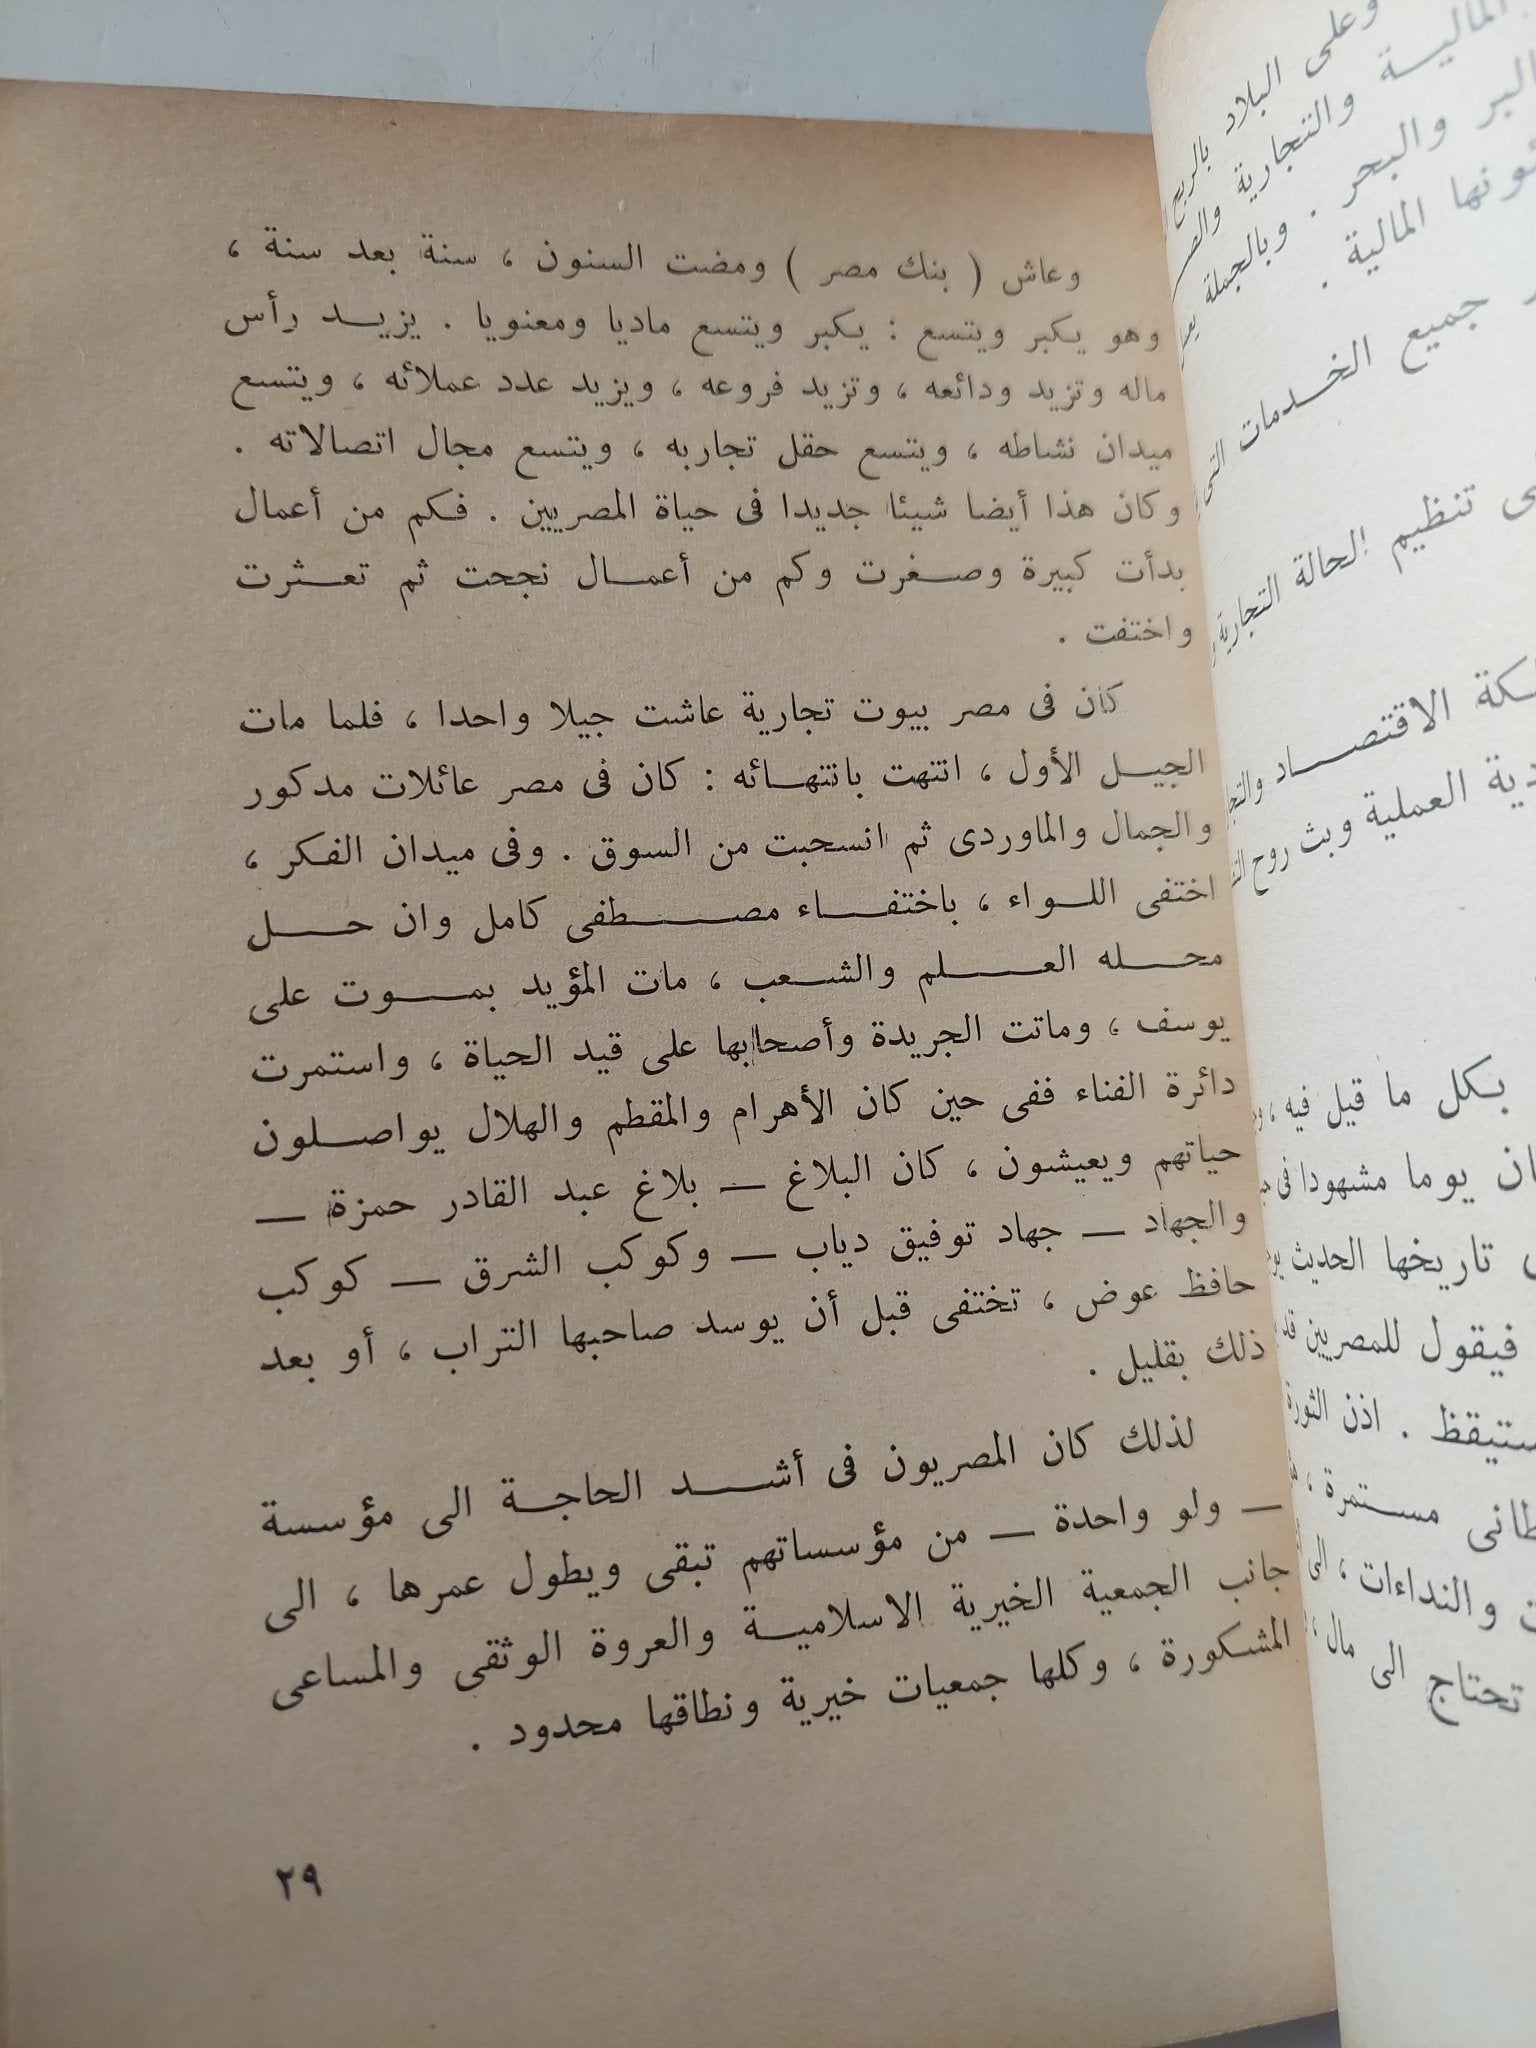 وعاش ( بنك مصر ) ومضت السنون ، سنة بعد سنة ،
وهو يكبر ويتسع : يكبر ويتسع ماديا ومعنويا . يزيد رأس
ماله وتزيد ودائعه ، وتزيد فروعه ، ويزيد عدد عملائه ، ويتسع
ميدان نشاطه ، ويتسع حقل تجاربه ، ويتسع مجال اتصالاته .
وكان هذا أيضا شيئا جديدا فى حياة المصريين . فكم من أعمال
بدأت كبيرة وصغرت وكم من أعمال نجحت ثم تعثرت
واختفت .
كان فى مصر بيوت تجارية عاشت جيلا واحدا ، فلما مات
الجيل الأول ، انتهت بانتهائه : كان فى مصر عائلات مدكور
والجمال والماوردى ثم انسحبت من السوق . وفى ميدان الفكر ،
اختفى اللواء ، باختفاء مصطفى كامل وان حل
محله العلم والشعب ، مات المؤيد بموت على
يوسف ، وماتت الجريدة وأصحابها على قيد الحياة ، واستمرت
دائرة الفناء ففى حين كان الأهرام والمقطم والهلال يواصلون
حياتهم ويعيشون ، كان البلاغ — بلاغ عبد القادر حمزة —
والجهاد — جهاد توفيق دياب — وكوكب الشرق — كوكب
حافظ عوض ، تختفى قبل أن يوسد صاحبها التراب ، أو بعد
ذلك بقليل .
لذلك كان المصريون فى أشد الحاجة الى مؤسسة
— ولو واحدة — من مؤسساتهم تبقى ويطول عمرها ، الى
جانب الجمعية الخيرية الاسلامية والعروة الوثقى والمساعى
المشكورة ، وكلها جمعيات خيرية ونطاقها محدود .
٢٩
وعلى البلاد بالربح
المالية والتجارية
البر والبحر . وبالجملة
المالية .
جميع الخدمات التى
تنظيم الحالة التجارية
الاقتصاد
العملية وبث روح
بكل ما قيل فيه ،
يوما مشهودا فى
تاريخها الحديث
فيقول للمصريين قد
. اذن الثورة
مستمرة ،
والنداءات ، الى
تحتاج الى مال ،